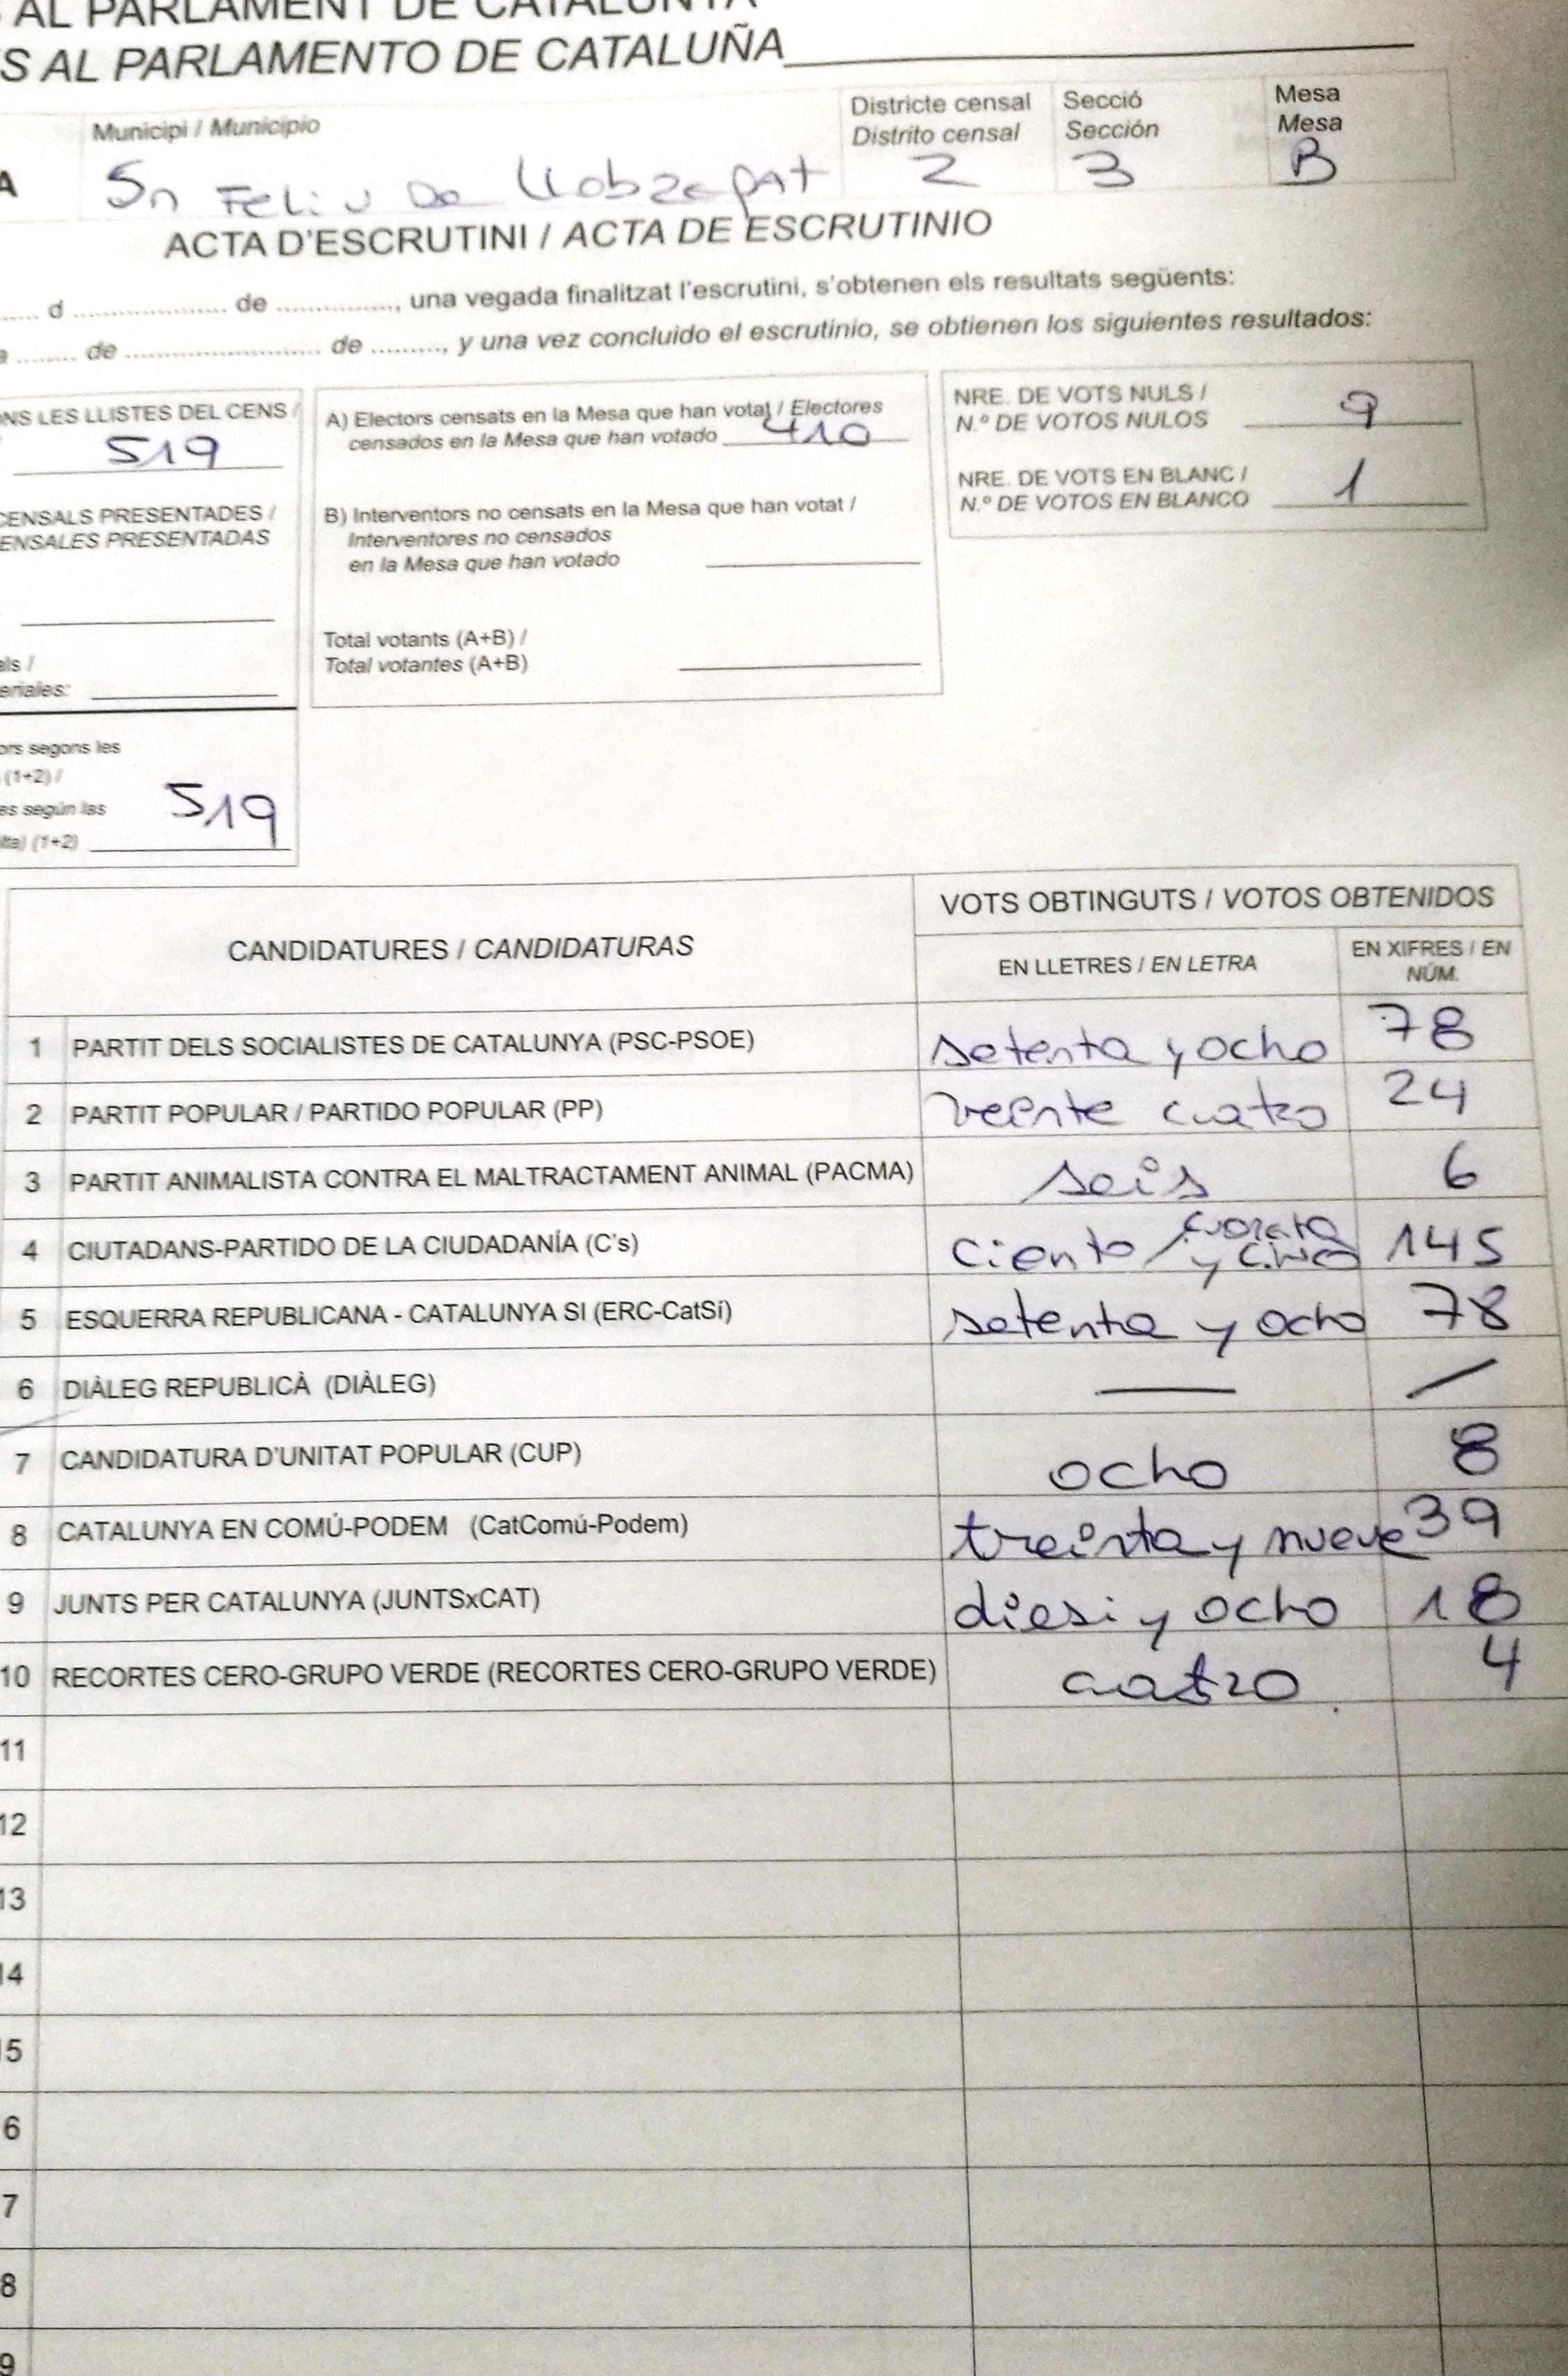 AL PARLAMENT DE CATALUNYA
S AL PARLAMENTO DE CATALUÑA
Municipi / Municipio
Districte censal
Distrito censal
Secció
Sección
Mesa
Mesa
A
Sn Feliu De Llobregat
2
3
B
ACTA D'ESCRUTINI / ACTA DE ESCRUTINIO
....... d .................... de ..............., una vegada finalitzat l'escrutini, s'obtenen els resultats següents:
a ........ de ......................... de ........., y una vez concluido el escrutinio, se obtienen los siguientes resultados:
ONS LES LLISTES DEL CENS /
519
CENSALS PRESENTADES /
ENSALES PRESENTADAS
als /
eriales:
ors segons les
(1+2) /
es según las
lta) (1+2)
519
A) Electors censats en la Mesa que han votat / Electores
censados en la Mesa que han votado 410
B) Interventors no censats en la Mesa que han votat /
Interventores no censados
en la Mesa que han votado
Total votants (A+B) /
Total votantes (A+B)
NRE. DE VOTS NULS /
N.º DE VOTOS NULOS 9
NRE. DE VOTS EN BLANC /
N.º DE VOTOS EN BLANCO 1
CANDIDATURES / CANDIDATURAS
VOTS OBTINGUTS / VOTOS OBTENIDOS
EN LLETRES / EN LETRA
EN XIFRES / EN
NÚM.
1 PARTIT DELS SOCIALISTES DE CATALUNYA (PSC-PSOE) setenta y ocho 78
2 PARTIT POPULAR / PARTIDO POPULAR (PP) veente cuatro 24
3 PARTIT ANIMALISTA CONTRA EL MALTRACTAMENT ANIMAL (PACMA) seis 6
4 CIUTADANS-PARTIDO DE LA CIUDADANÍA (C's) ciento / y cinco 145
5 ESQUERRA REPUBLICANA - CATALUNYA SI (ERC-CatSí) setenta y ocho 78
6 DIÀLEG REPUBLICÀ (DIÀLEG) — /
7 CANDIDATURA D'UNITAT POPULAR (CUP) ocho 8
8 CATALUNYA EN COMÚ-PODEM (CatComú-Podem) treinta y nueve 39
9 JUNTS PER CATALUNYA (JUNTSxCAT) diesi y ocho 18
10 RECORTES CERO-GRUPO VERDE (RECORTES CERO-GRUPO VERDE) cuatro 4
11
12
13
14
15
6
7
8
9